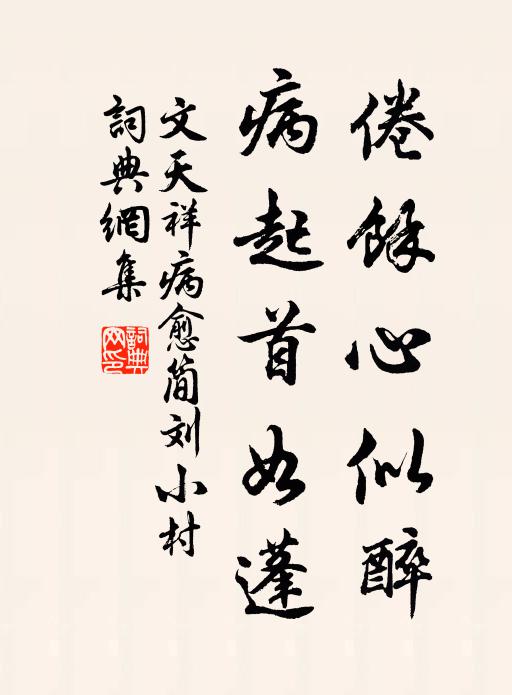 倦餘心似醉
病起首如蓬
文天祥病愈简刘小村
詞典網集
詞典